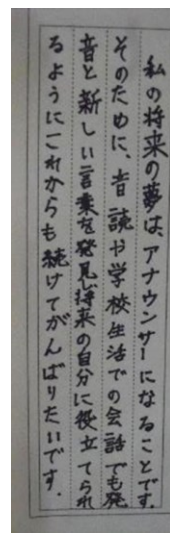 私の将来の夢は、アナウンサーになることです。
そのために、音読や学校生活での会話でも発
音と新しい言葉を発見し将来の自分に役立てられ
るようにこれからも続けてがんばりたいです.